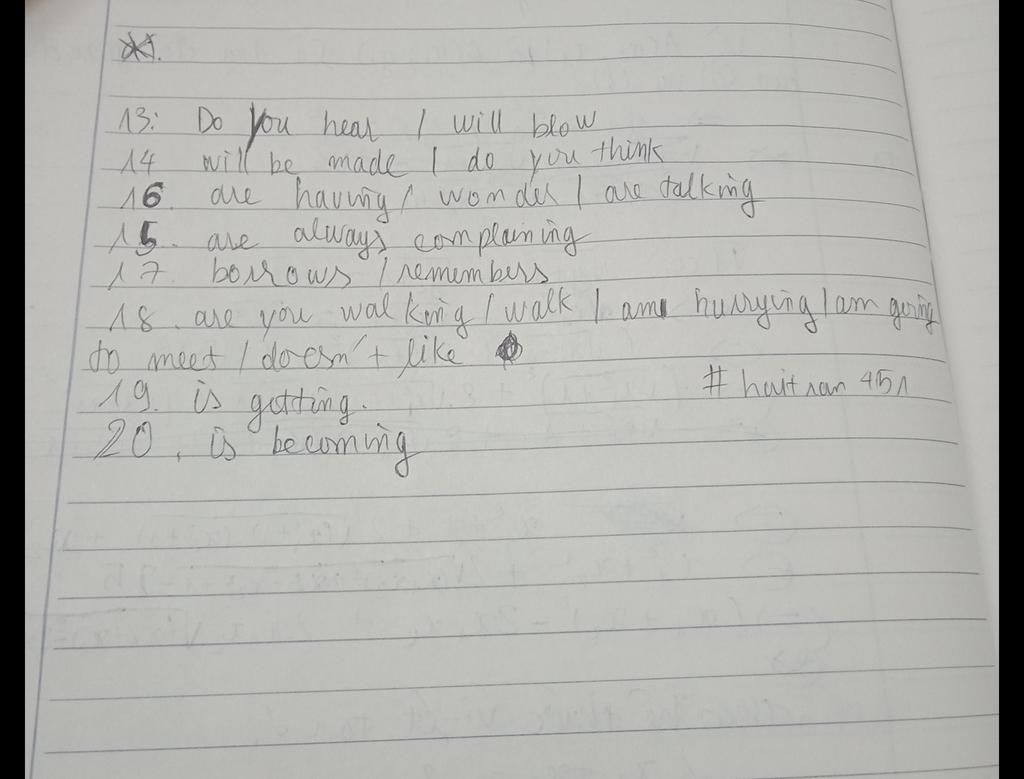 13: Do you hear / will blow
14 will be made / do you think
16. are having / wonder / are talking
15. are always complaining
17. borrows / remembers
18. are you walking / walk / am hurrying / am going
to meet / doesn't like
19. is getting.
# haitran 451
20. is becoming